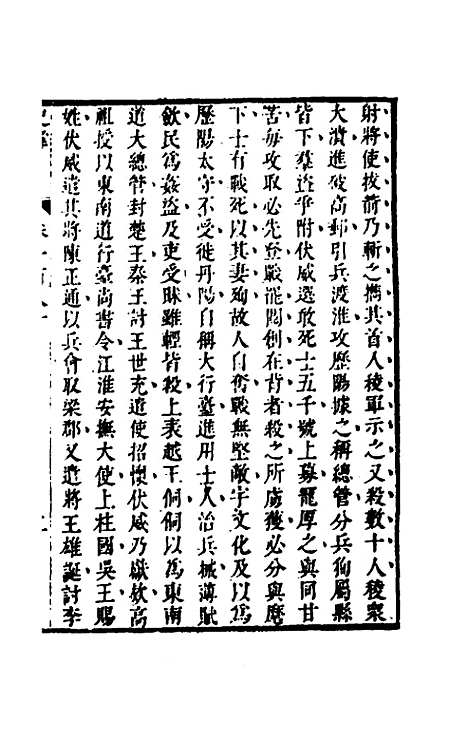 射將使拔箭乃斬之攜其首入稜軍示之又殺數十人稜衆
大潰進破高郵引兵渡淮攻歷陽據之稱總管分兵徇屬縣
皆下羣盜爭附伏威選敢死士五千號上募寵厚之與同甘
苦每攻取必先登戰罷閱創在背者殺之所虜獲必分與麾
下士有戰死以其妻殉故人自奮戰無堅敵宇文化及以爲
歷陽太守不受徙丹陽自稱大行臺進用士人治兵械薄賦
歛民爲姦盜及吏受賕雖輕皆殺上表越王侗侗以爲東南
道大總管封楚王秦王討王世充遣使招懷伏威乃獻欵高
祖授以東南道行臺尚書令江淮安撫大使上柱國吳王賜
姓伏威遣其將陳正通以兵會取梁郡又遣將王雄誕討李